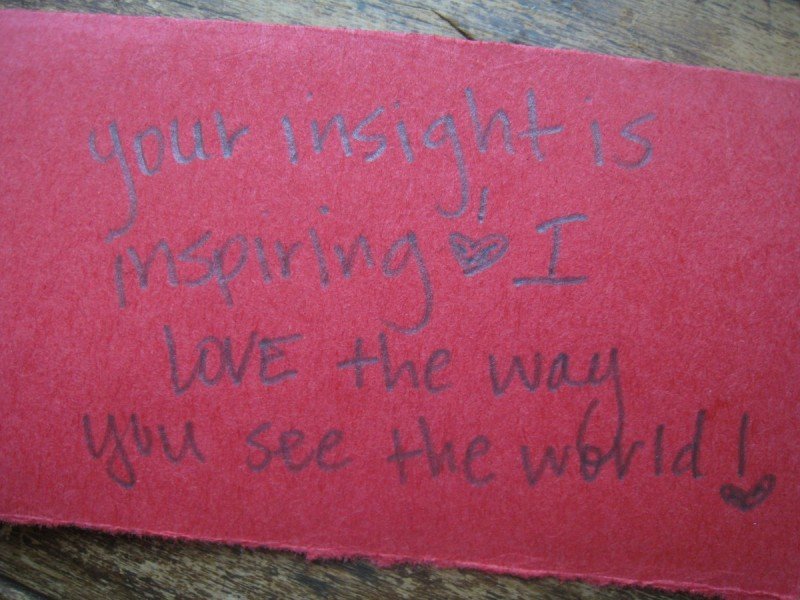 your insight is
inspiring! I
LOVE the way
you see the world!